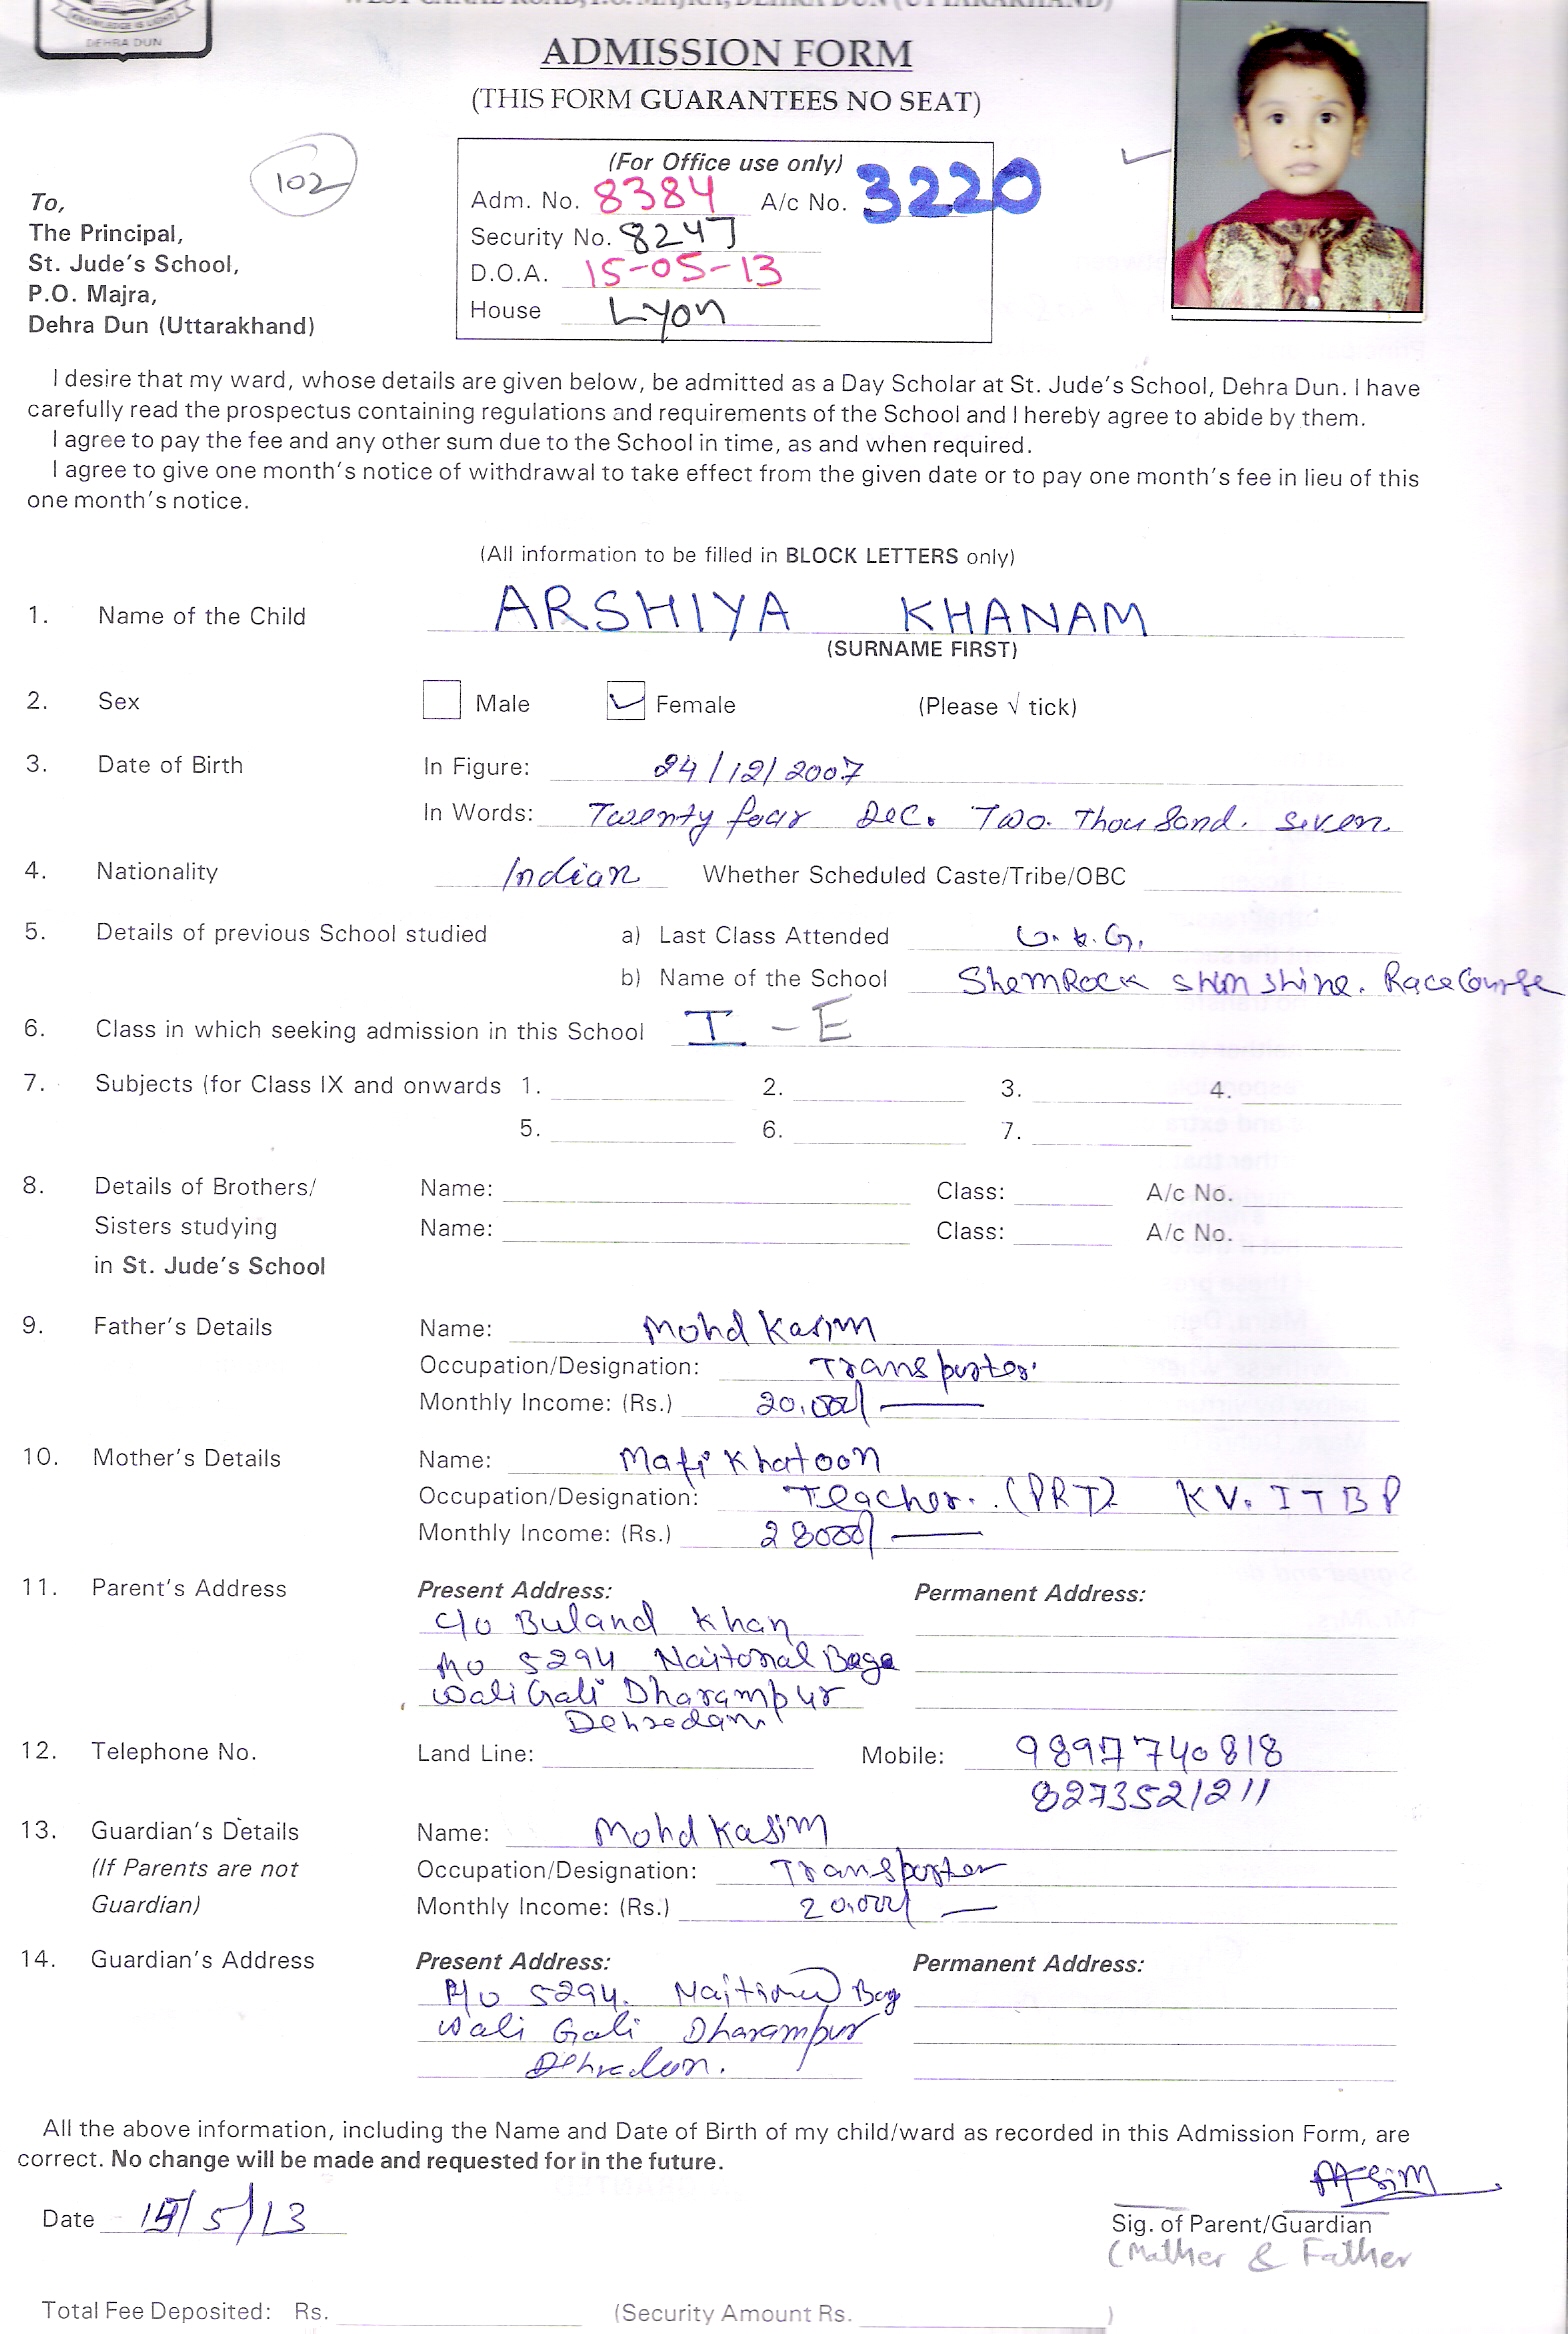 KNOWLEDGE IS LIGHT
DEHRA DUN
WEST CANAL ROAD, P.O. MAJRA, DEHRA DUN (UTTARAKHAND)
ADMISSION FORM
(THIS FORM GUARANTEES NO SEAT)
102
(For Office use only)
Adm. No. 8384 A/c No. 3220
Security No. 8247
D.O.A. 15-05-13
House Lyon
To,
The Principal,
St. Jude's School,
P.O. Majra,
Dehra Dun (Uttarakhand)
I desire that my ward, whose details are given below, be admitted as a Day Scholar at St. Jude's School, Dehra Dun. I have
carefully read the prospectus containing regulations and requirements of the School and I hereby agree to abide by them.
I agree to pay the fee and any other sum due to the School in time, as and when required.
I agree to give one month's notice of withdrawal to take effect from the given date or to pay one month's fee in lieu of this
one month's notice.
(All information to be filled in BLOCK LETTERS only)
1. Name of the Child ARSHIYA KHANAM
(SURNAME FIRST)
2. Sex Male Female (Please √ tick)
3. Date of Birth In Figure: 24/12/2007
In Words: Twenty four Dec. Two Thousand. seven
4. Nationality Indian Whether Scheduled Caste/Tribe/OBC
5. Details of previous School studied a) Last Class Attended U.K.G.
b) Name of the School ShemRock shun shine. RaceCourse
6. Class in which seeking admission in this School I - E
7. Subjects (for Class IX and onwards 1. 2. 3. 4.
5. 6. 7.
8. Details of Brothers/ Name: Class: A/c No.
Sisters studying Name: Class: A/c No.
in St. Jude's School
9. Father's Details Name: Mohd Kasim
Occupation/Designation: Transporter.
Monthly Income: (Rs.) 20,000/
10. Mother's Details Name: Mafi Khatoon
Occupation/Designation: Teacher. (PRT) KV. ITBP
Monthly Income: (Rs.) 28000/
11. Parent's Address Present Address: Permanent Address:
C/o Buland Khan
5294 Naitonal Baga
Wali Gali Dharampur
Dehredam
12. Telephone No. Land Line: Mobile: 9897740818
8273521211
13. Guardian's Details Name: Mohd Kasim
(If Parents are not Occupation/Designation: Transporter
Guardian) Monthly Income: (Rs.) 20,000/
14. Guardian's Address Present Address: Permanent Address:
5294. Bag
Wali Gali Dharampur
Dehradun.
All the above information, including the Name and Date of Birth of my child/ward as recorded in this Admission Form, are
correct. No change will be made and requested for in the future.
Date 15/5/13
Sig. of Parent/Guardian
(Mother & Father
Total Fee Deposited: Rs. (Security Amount Rs. )